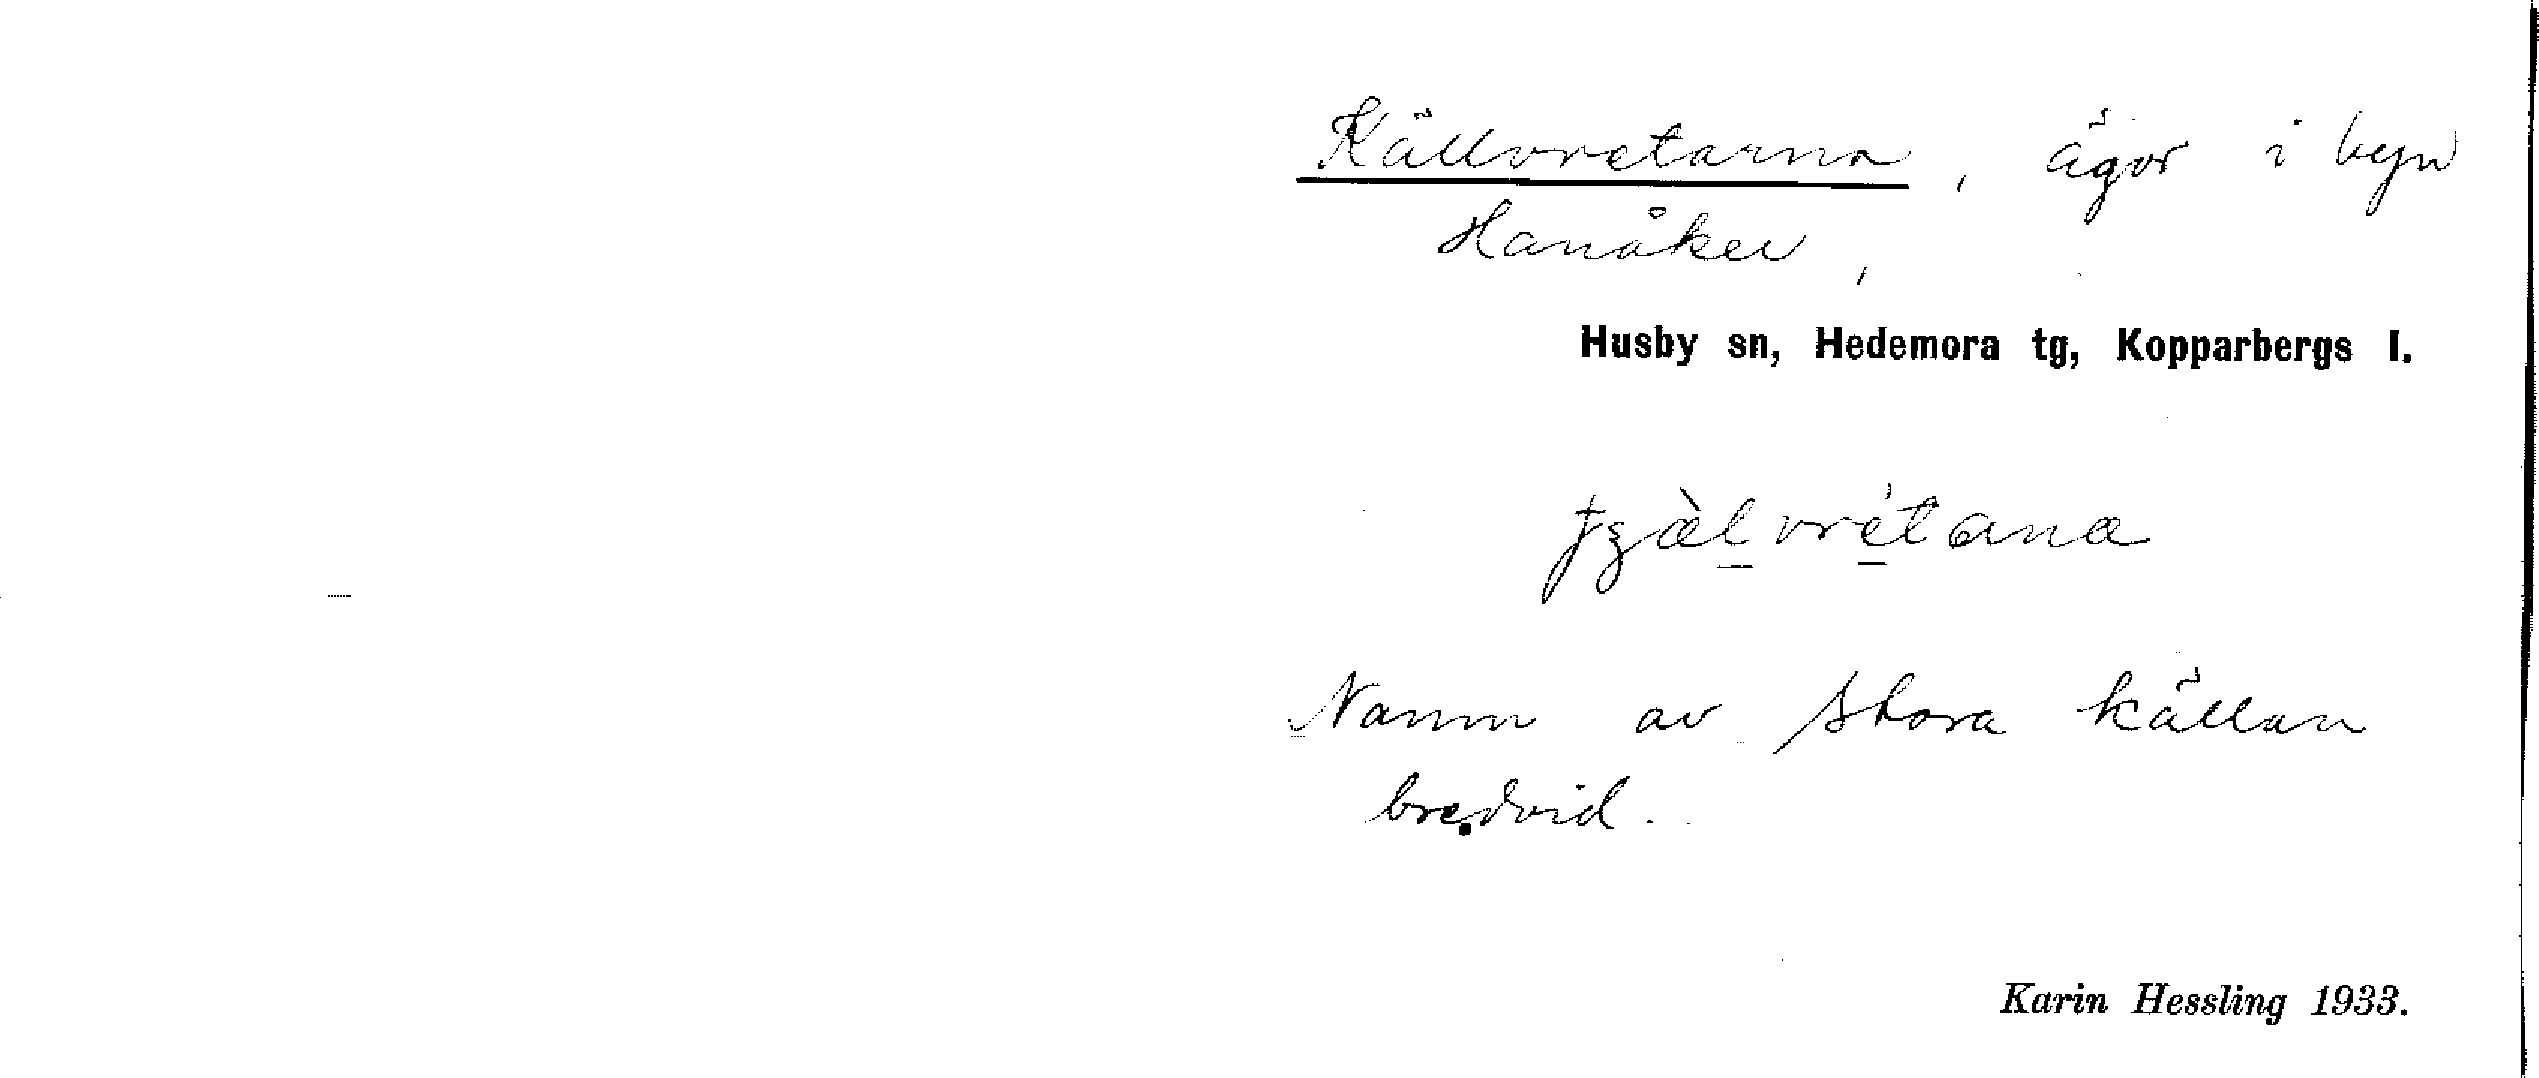 Källvretarna, ägor i byn
Hanåker,
Husby sn, Hedemora tg, Kopparbergs l.
Namn av stora källan
bredvid.
Karin Hessling 1933.